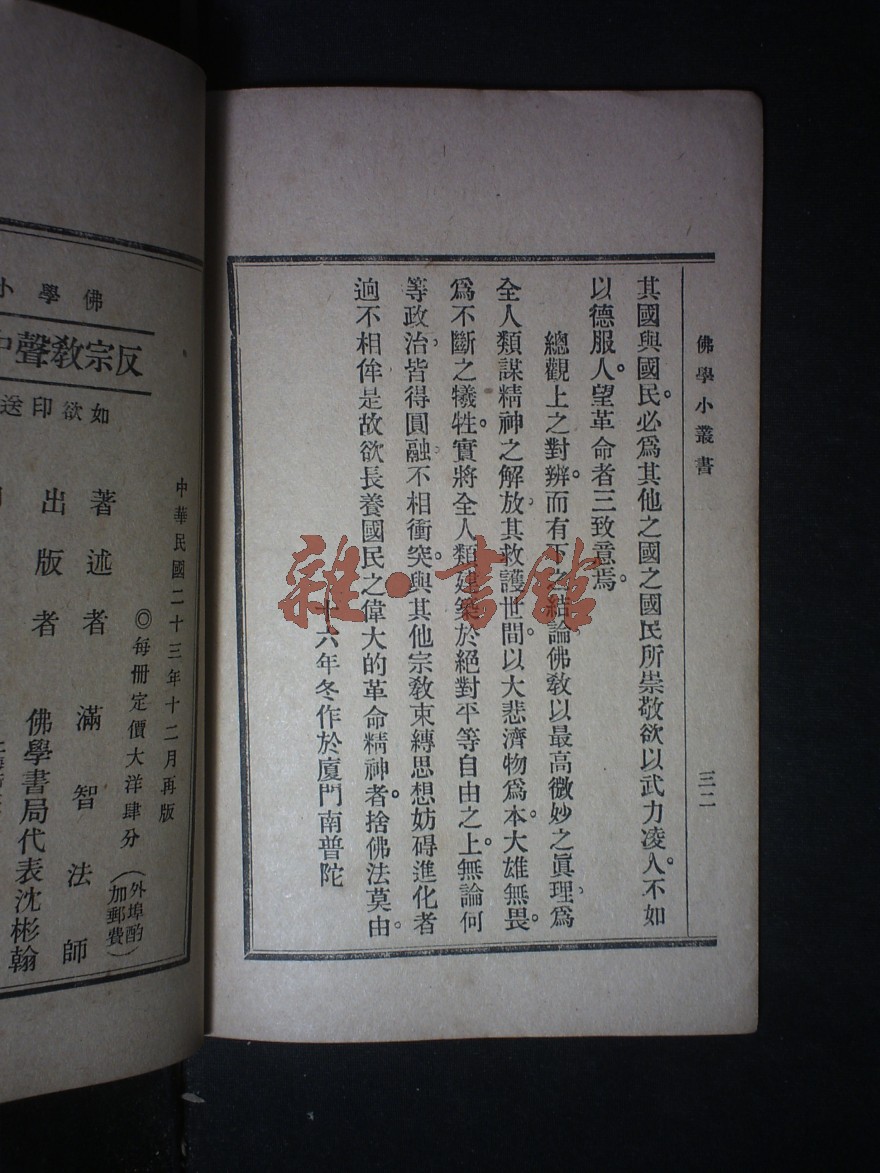 佛學小叢書
三二
其國與國民。必爲其他之國之國民所崇敬欲以武力凌人。不如
以德服人。望革命者三致意焉。
總觀上之對辨。而有下之結論佛教以最高微妙之眞理，爲
全人類謀精神之解放，其救護世間。以大悲濟物爲本。大雄無畏。
爲不斷之犧牲。實將全人類建築於絕對平等自由之上。無論何
等政治，皆得圓融，不相衝突。與其他宗教束縛思想妨碍進化者
逈不相侔是故欲長養國民之偉大的革命精神者。捨佛法莫由。
十六年冬作於廈門南普陀
雜·書館
佛學小
反宗教聲中
如欲印送
中華民國二十三年十二月再版
◎每冊定價大洋肆分（外埠酌加郵費）
著述者 滿智法師
出版者 佛學書局代表沈彬翰